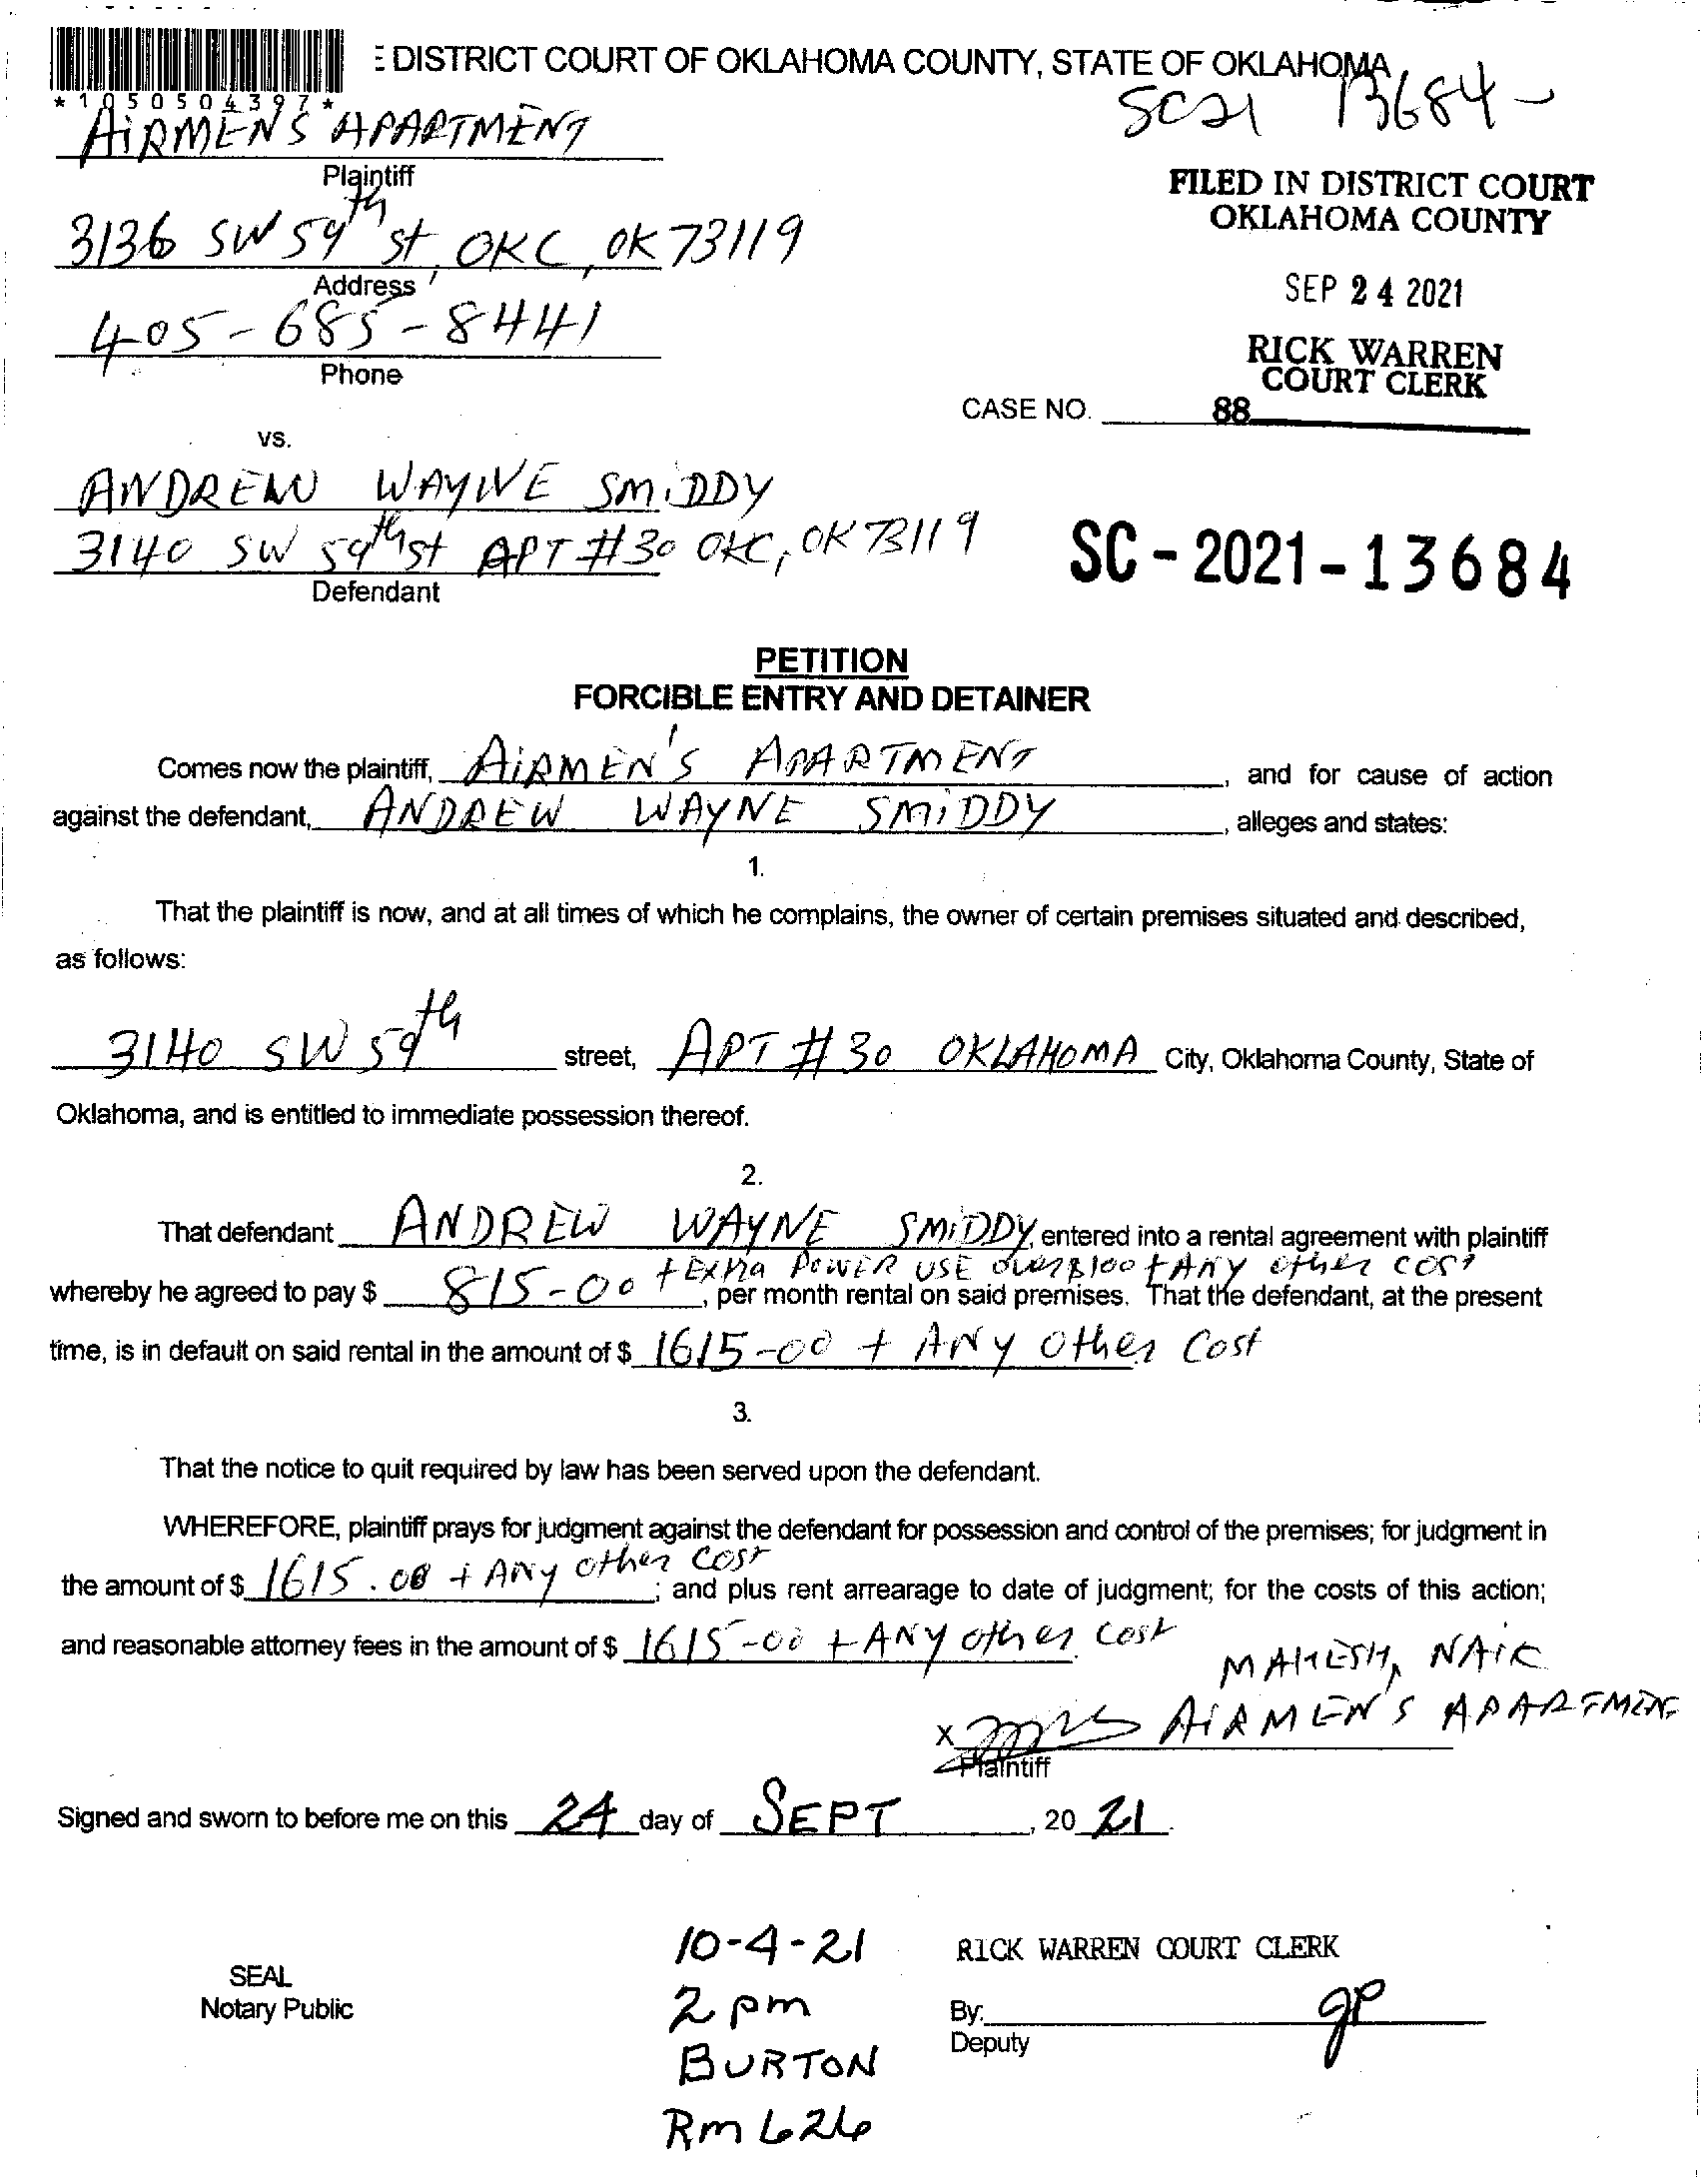 E DISTRICT COURT OF OKLAHOMA COUNTY, STATE OF OKLAHOMA
*1050504397*
SC21 13684-
AIRMEN'S APARTMENT
Plaintiff
FILED IN DISTRICT COURT
OKLAHOMA COUNTY
3136 SW 59th St, OKC, OK 73119
Address
SEP 24 2021
405-685-8441
Phone
RICK WARREN
COURT CLERK
CASE NO. 88
vs.
ANDREW WAYNE SMIDDY
3140 SW 59th st APT #30 OKC, OK 73119
Defendant
SC-2021-13684
PETITION
FORCIBLE ENTRY AND DETAINER
Comes now the plaintiff, AIRMEN'S APARTMENT, and for cause of action
against the defendant, ANDREW WAYNE SMIDDY, alleges and states:
1.
That the plaintiff is now, and at all times of which he complains, the owner of certain premises situated and described,
as follows:
3140 SW 59th street, APT #30 OKLAHOMA City, Oklahoma County, State of
Oklahoma, and is entitled to immediate possession thereof.
2.
That defendant ANDREW WAYNE SMIDDY, entered into a rental agreement with plaintiff
+ Extra POWER USE over $100 + ANY other cost
whereby he agreed to pay $ 815-00, per month rental on said premises. That the defendant, at the present
time, is in default on said rental in the amount of $ 1615-00 + ANY Other Cost
3.
That the notice to quit required by law has been served upon the defendant.
WHEREFORE, plaintiff prays for judgment against the defendant for possession and control of the premises; for judgment in
the amount of $ 1615.00 + ANY other cost; and plus rent arrearage to date of judgment; for the costs of this action;
and reasonable attorney fees in the amount of $ 1615-00 + ANY other cost.
MAHESH, NAIK
X AIRMEN'S APARTMENT
Plaintiff
Signed and sworn to before me on this 24 day of SEPT, 20 21.
10-4-21
RICK WARREN COURT CLERK
SEAL
Notary Public
2 pm
By: JP
Deputy
BURTON
Rm 626